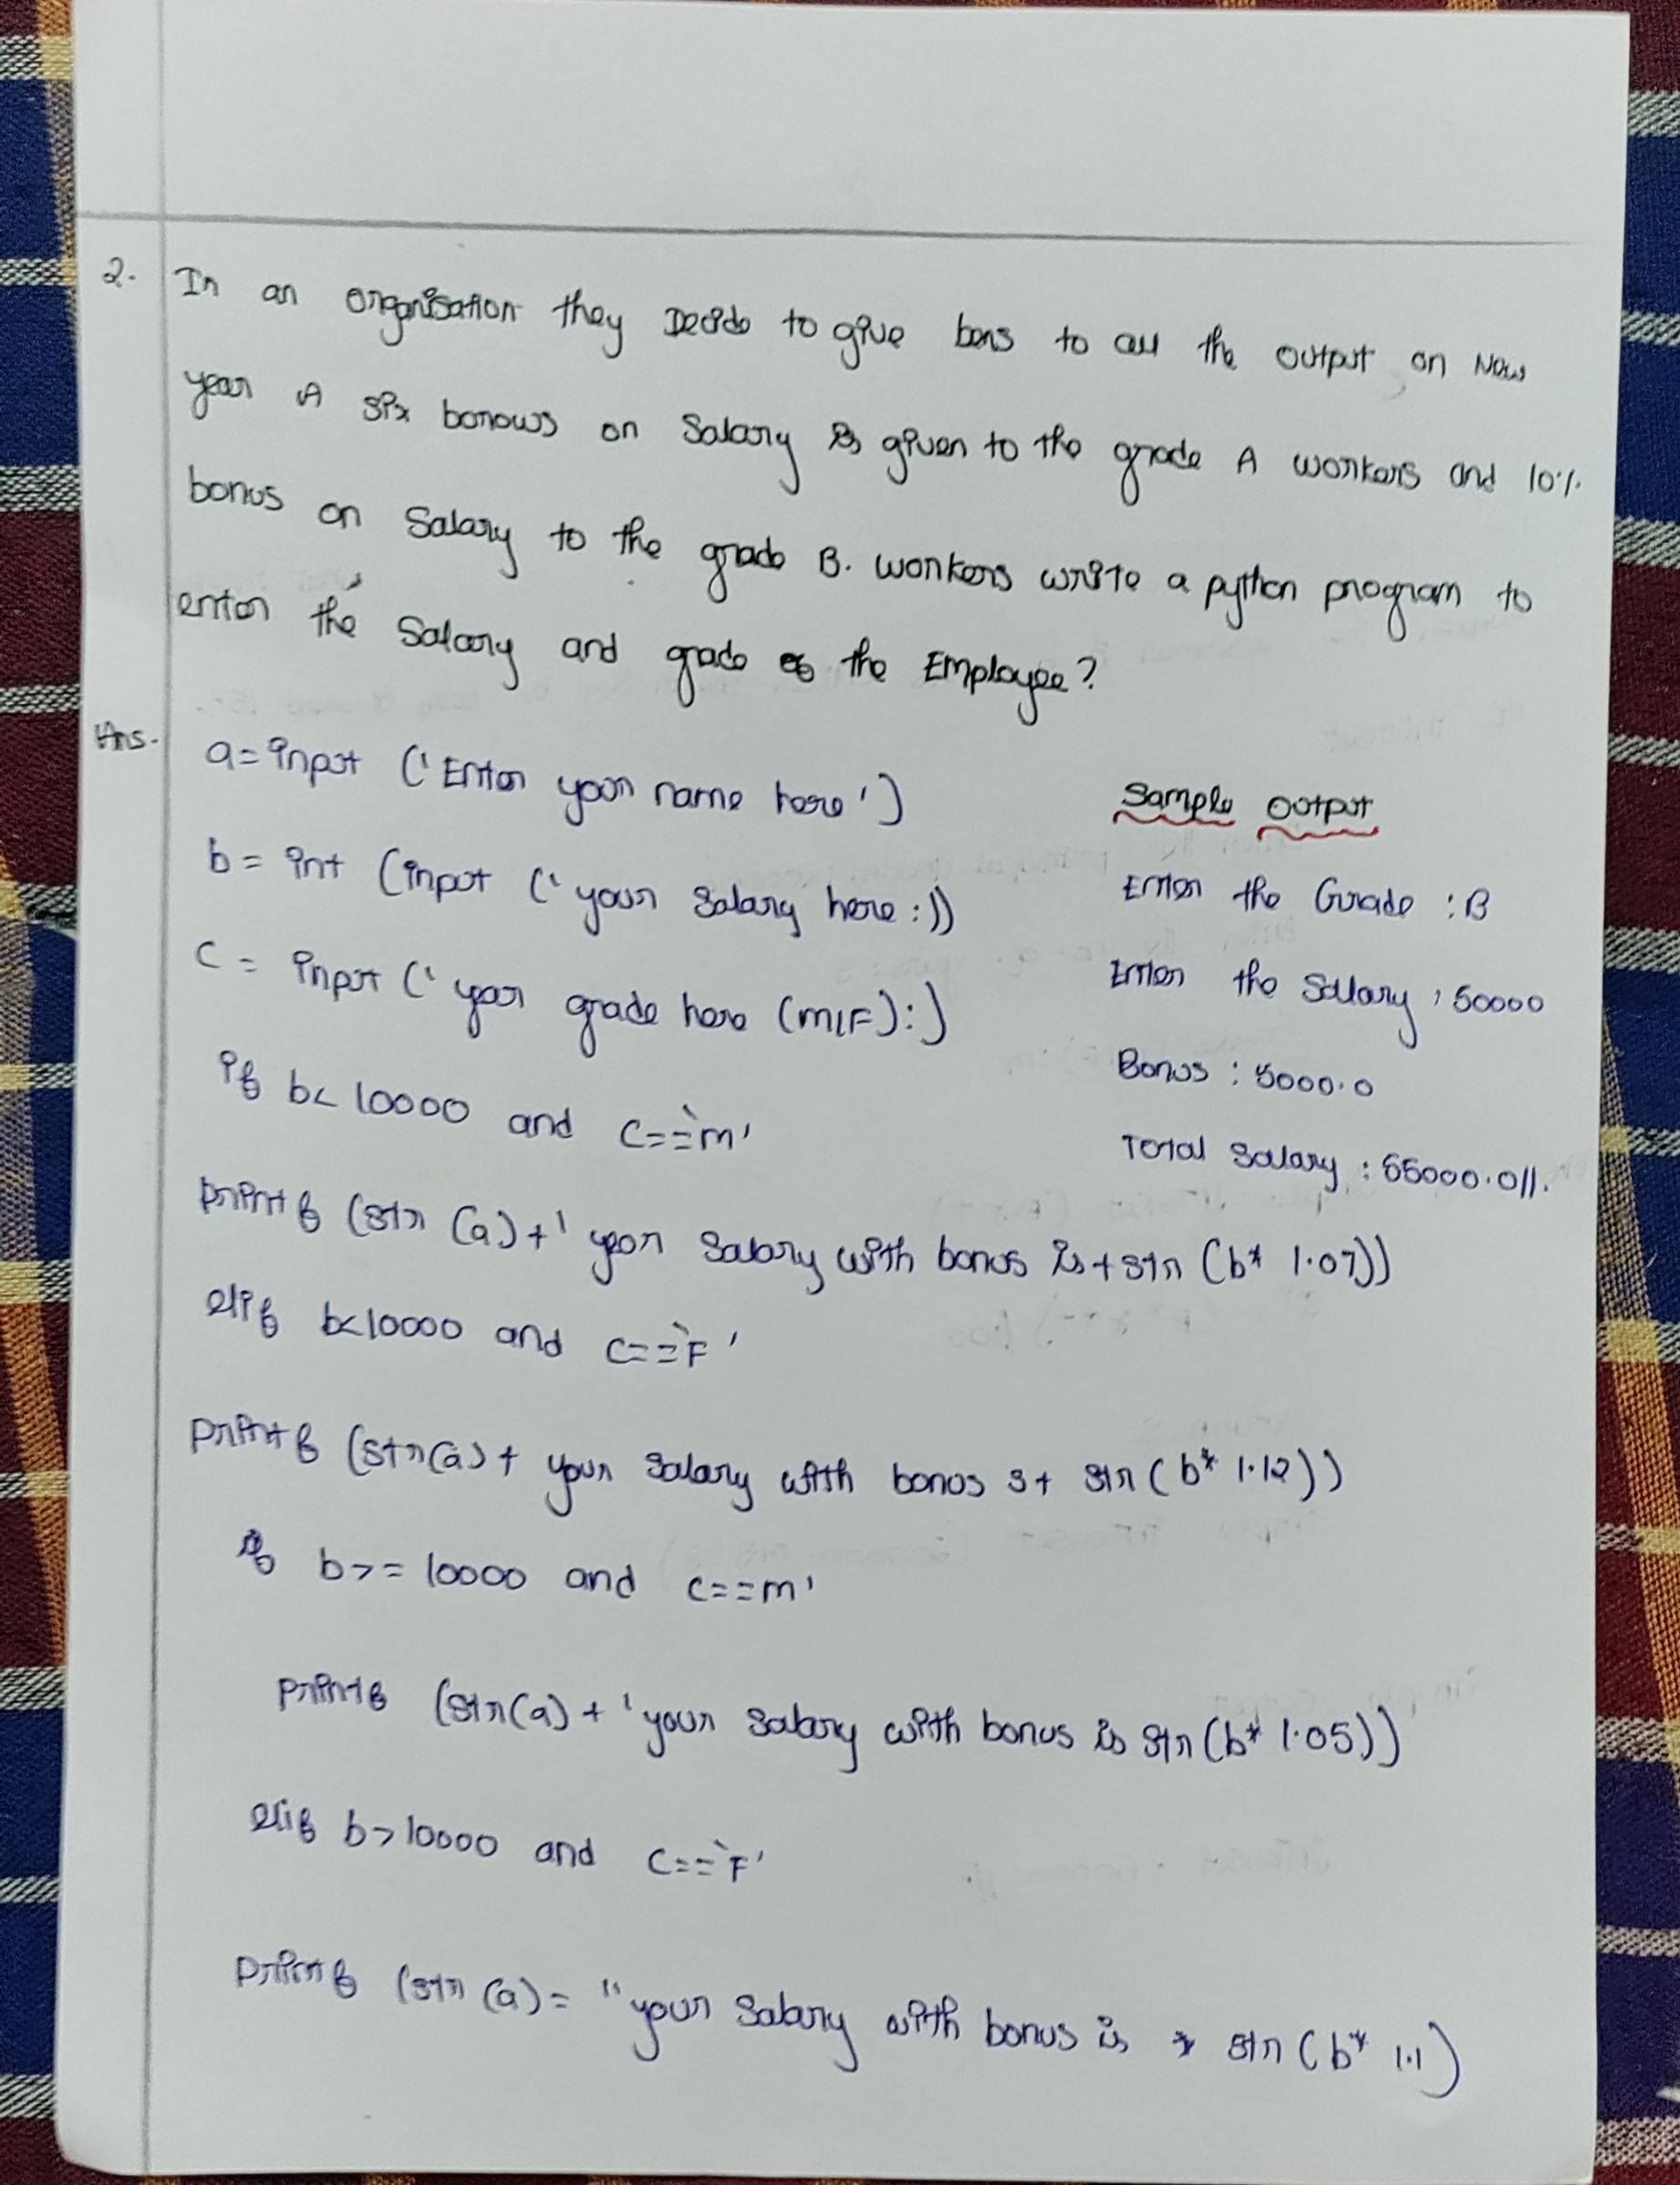 2. In an organisation they Decide to give bons to all the output on New
year A SPx bonows on Salary is given to the grade A workers and 10%
bonus on Salary to the grade B. workers write a python program to
enter the Salary and grade of the Employee?
Ans.
a=input ('Enter your name here')
b = int (input (' your Salary here :))
C = input (' your grade here (m/F):)
if b< 10000 and C=='m'
printf (str (a)+' your Salary with bonus is + str (b* 1.07))
elif b<10000 and C=='F'
printf (str(a)+ your Salary with bonus s+ str (b* 1.12))
if b>= 10000 and C==m'
printf (str(a)+ 'your Salary with bonus is str (b* 1.05))
elif b>10000 and C=='F'
printf (str (a)= "your Salary with bonus is * str (b* 1.1)
Sample output
Enter the Grade : B
Enter the Sallary : 50000
Bonus : 5000.0
Total Salary : 55000.0//.